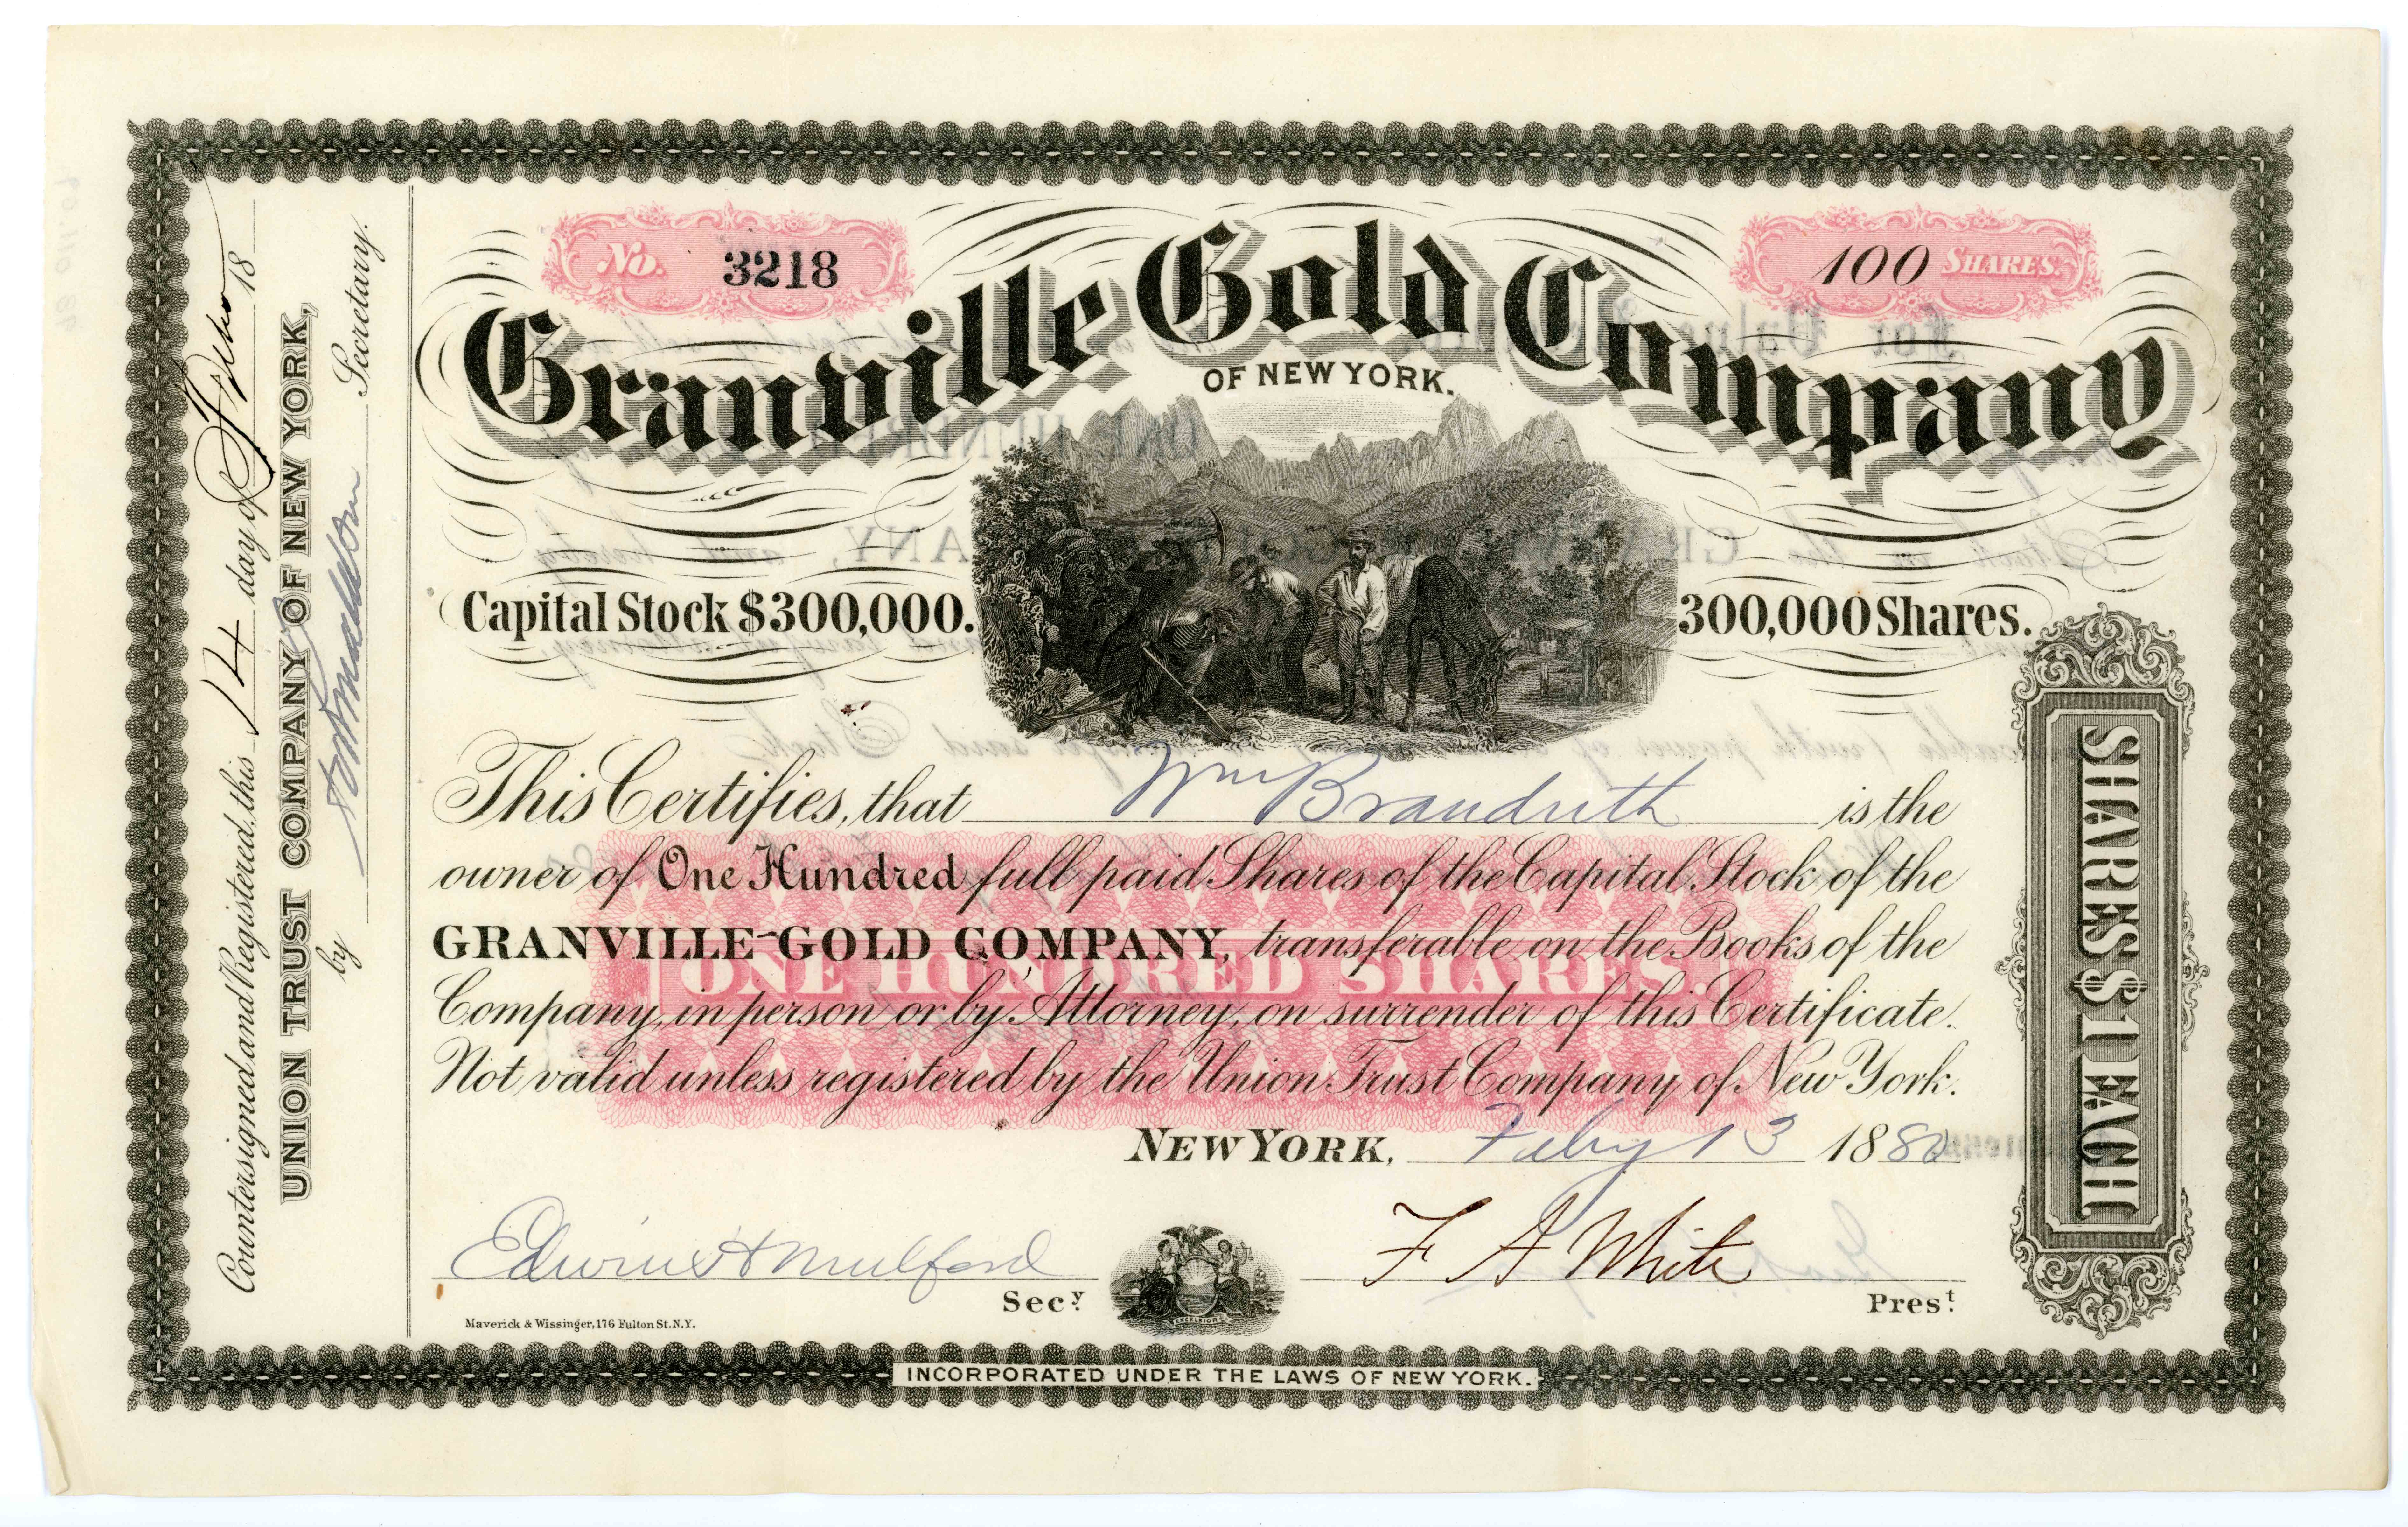 No. 3218
100 SHARES.
Granville Gold Company
OF NEW YORK.
Capital Stock $300,000.
300,000 Shares.
This Certifies, that Wm Brandreth is the
owner of One Hundred full paid Shares of the Capital Stock of the
GRANVILLE GOLD COMPANY, transferable on the Books of the
ONE HUNDRED SHARES.
Company, in person or by Attorney, on surrender of this Certificate.
Not valid unless registered by the Union Trust Company of New York.
NEW YORK, Feby 13 1880
Edwin H Mulford
Secy.
F A White
Prest.
EXCELSIOR
Maverick & Wissinger, 176 Fulton St. N.Y.
INCORPORATED UNDER THE LAWS OF NEW YORK.
SHARES $1 EACH.
Countersigned and Registered, this 14 day of 18
UNION TRUST COMPANY OF NEW YORK,
by Secretary.